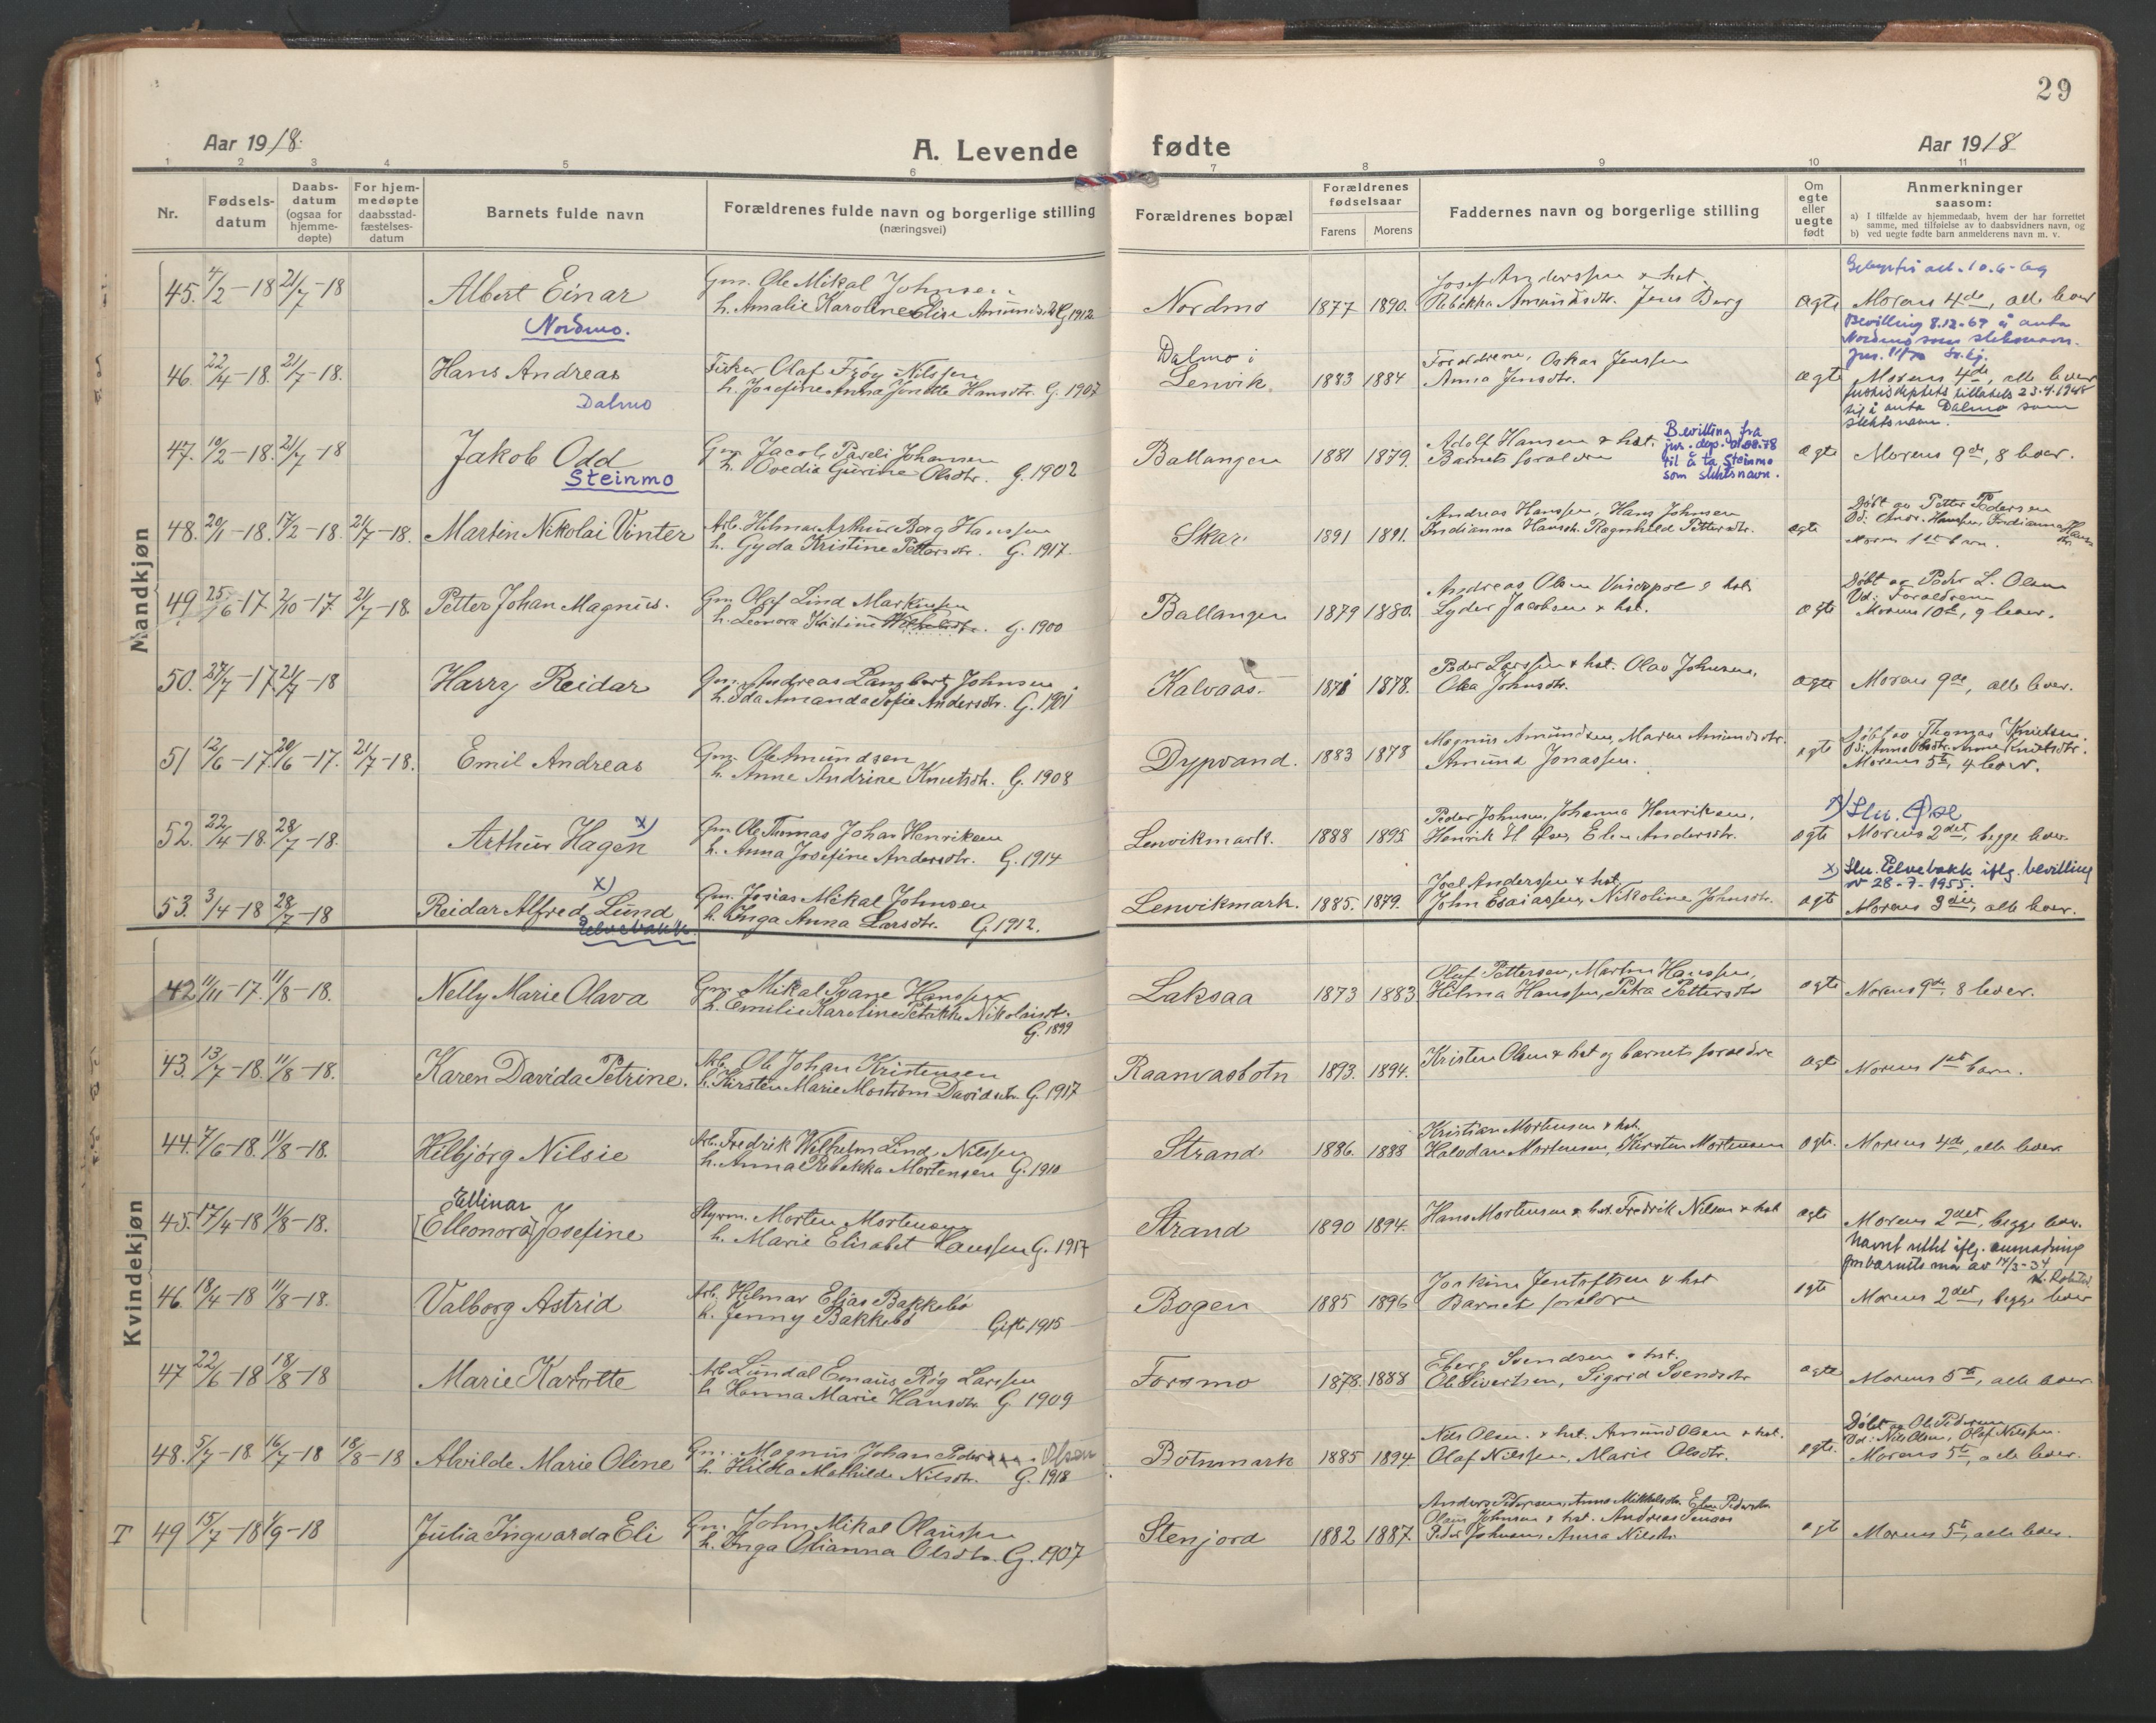 29
Aar 1918.
A. Levende fødte
Aar 1918
1 2 3 4 5 6 7 8 9 10 11
Nr.
Fødsels-
datum
Daabs-
datum
(ogsaa for
hjemme-
døpte)
For hjem-
medøpte
daabsstad-
fæstelses-
datum
Barnets fulde navn
Forældrenes fulde navn og borgerlige stilling
(næringsvei)
Forældrenes bopæl
Forældrenes
fødselsaar
Farens Morens
Faddernes navn og borgerlige stilling
Om
egte
eller
uegte
født
Anmerkninger
saasom:
a) I tilfælde av hjemmedaab, hvem der har forrettet
samme, med tilføielse av to daabsvidners navn, og
b) ved uegte fødte barn anmelderens navn m. v.
Mandkjøn
45. 4/2-18 21/7-18
Albert Einar
Nordmo.
Gm. Ole Mikal Johnsen
h. Amalie Karoline Elise Amundsdtr. G 1912
Nordmo 1877 1890.
Josef Anderssen & hst.
Rebekka Amundsdtr. Jens Berg
ægte
Morens 4de, alle lever
Bevilling 8.12.69 å anta
Nordmo som slektsnavn.
46. 22/4-18. 21/7-18.
Hans Andreas
Dalmo
Fisker Olaf Frøy Nilssen
h. Josefine Anna Jonette Hansdtr. G. 1907
Dalmo i
Lenvik 1883 1884
Forældrene, Oskar Jenssen
Anna Jensdtr.
ægte
Morens 4de, alle lever
Justisdeptets tillatelse 23.4.1948
til å anta Dalmo som
slektsnavn.
47. 10/2-18. 21/7-18
Jakob Odd
Steinmo
Gm. Jacob Pareli Johansen
h. Ovedia Gurine Olsdtr. G. 1902
Ballangen 1881 1879.
Adolf Hansen & hst.
Barnets forældre
Bevilling fra
jus. dep. 01.08.78
til å ta Steinmo
som slektsnavn.
ægte
Morens 9de, 8 lever.
48. 20/1-18. 17/2-18 21/7-18.
Martin Nikolai Vinter
Arb. Hilmar Arthur Borg Hanssen
h. Gyda Kristine Pettersdtr. G. 1917.
Skar 1891 1891.
Andreas Hanssen, Hans Johnsen
Indianna Hansdt. Ragnhild Pettersdtr.
ægte
Døbt av Petter Pedersen
Vd: Andr. Hanssen, Indianna Hans-
dtr.
Morens 1ste barn.
49 25/6-17 2/10-17 21/7-18.
Petter Johan Magnus.
Gm Olaf Lind Martinsen
h. Leonora Kristine G. 1900
Ballangen 1879 1880.
Andreas Olsen & hst.
Lyder Jacobsen & hst.
ægte
Døbt av Peder L. Olsen
Vd: Forældrene
Morens 10de, 9 lever.
50. 27/7-17 21/7-18
Harry Reidar
Gm. Andreas Langberg Johnsen
h. Ida Amanda Sofie Andersdtr. G. 1901
Kalvaas. 1871 1878.
Peder Larssen & hst. Olav Johnsen,
Olea Johnsdtr.
ægte
Morens 9de, alle lever.
51 12/6-17. 20/6-17. 21/7-18.
Emil Andreas
Gm. Ole Amundsen
h. Anne Andrine Knutsdtr. G. 1908
Dypvand. 1883 1878
Magnus Amundsen, Maren Amundsdtr.
Amund Jonassen.
ægte
Døbt av Thomas Knutsen.
Vd: Anna Olsdtr. Anne Knutsdtr.
Morens 5te, 4 lever.
52. 22/4-18. 28/7-18.
Arthur Hagen x)
Gm Ole Tomas Johan Henriksen
h. Anna Josefine Andersdtr. G. 1914
Lenvikmark. 1888 1895
Peder Johnsen, Johanna Henriksen,
Henrik H. Elen Andersdtr.
ægte
Morens 2det, begge lever.
53. 3/4-18 28/7-18
x)
Reidar Alfred Lund
Elvebakk.
Gm. Josias Mikal Johnsen
h. Inga Anna Larsdtr. G. 1912.
Lenvikmark. 1885. 1879.
Joel Anderssen & hst.
John Esaiassen, Nikoline Johnsdtr.
ægte
x) Sln. Elvebakk iflg. bevilling
av 28-7-1955.
Morens 3die, alle lever.
Kvindekjøn
42 11/11-17. 11/8-18.
Nelly Marie Olava
Gm. Mikal Svane Hanssen
h. Emilie Karoline Petrikke Nikolaisdt.
G. 1899
Laksaa 1873 1883
Oluf Pettersen, Martin Hanssen,
Hilma Hanssen, Petra Pettersdtr
ægte
Morens 9de, 8 lever.
43. 13/7-18. 11/8-18.
Karen Davida Petrine.
Arb. Ole Johan Kristensen
h. Kirsten Marie Mostrøm Davidsdtr. G. 1917
Raanvasbotn 1893. 1894.
Kristen Olsen & hst og barnets forældre
ægte
Morens 1ste barn.
44. 7/6-18. 11/8-18.
Hilbjørg Nilsie
Arb. Fredrik Wilhelm Lind Nilssen
h. Anna Rebekka Mortensen G. 1910
Strand 1886. 1888
Kristian Mortensen & hst.
Halvdan Mortensen, Kirsten Mortensen
ægte.
Morens 4de, alle lever.
45. 17/4-18 11/8-18.
Ellinor
[Elleonora] Josefine
Styrm. Morten Mortensen
h. Marie Elisabet Hanssen G. 1917
Strand 1890 1894.
Hans Mortensen & hst. Fredrik Nilsen & hst
ægte
Morens 2det, begge lever.
Navnet rettet iflg. anmodning
fra barnets mor av 14/3-34
46. 18/4-18 11/8-18.
Valborg Astrid
Arb. Hilmar Elias Bakkebø
h. Jenny Bakkebø Gift 1915
Bogen 1885 1896
Joakim Jentoftsen & hst
Barnets forældre
ægte
Morens 2det, begge lever
47 22/6-18 18/8-18
Marie Karlotte
Arb. Lundal Emaus Røg Larssen
h. Hanna Marie Hansdtr. G. 1909
Forsmo 1878. 1888
Eberg Svendsen & hst.
Ole Sivertsen, Sigrid Svendsdtr
ægte
Morens 5te, alle lever
48. 5/7-18 16/7-18 18/8-18
Alvilde Marie Oline
Gm. Magnus Johan Pedersen Olsen
h. Hilda Mathilde Nilsdtr. G. 1918
Botnmark 1885 1894
Nils Olsen & hst. Amund Olsen & hst.
Olaf Nilssen, Marie Olsdtr.
ægte.
Døbt av Ole Pedersen
Vd: Nils Olsen, Olaf Nilssen.
Morens 5te, alle lever.
T 49 15/7-18 1/9-18
Julia Ingvarda Eli
Gm. John Mikal Olaussen
h. Inga Olianna Olsdtr. G. 1907
Stenjord 1882 1887.
Anders Pedersen, Anna Mikkelsdtr. Elen Pedersdtr.
Olaus Johnsen & hst. Andreas Jenssen
Peder Johnsen, Anna Nilsdtr.
ægte
Morens 5te, alle lever.